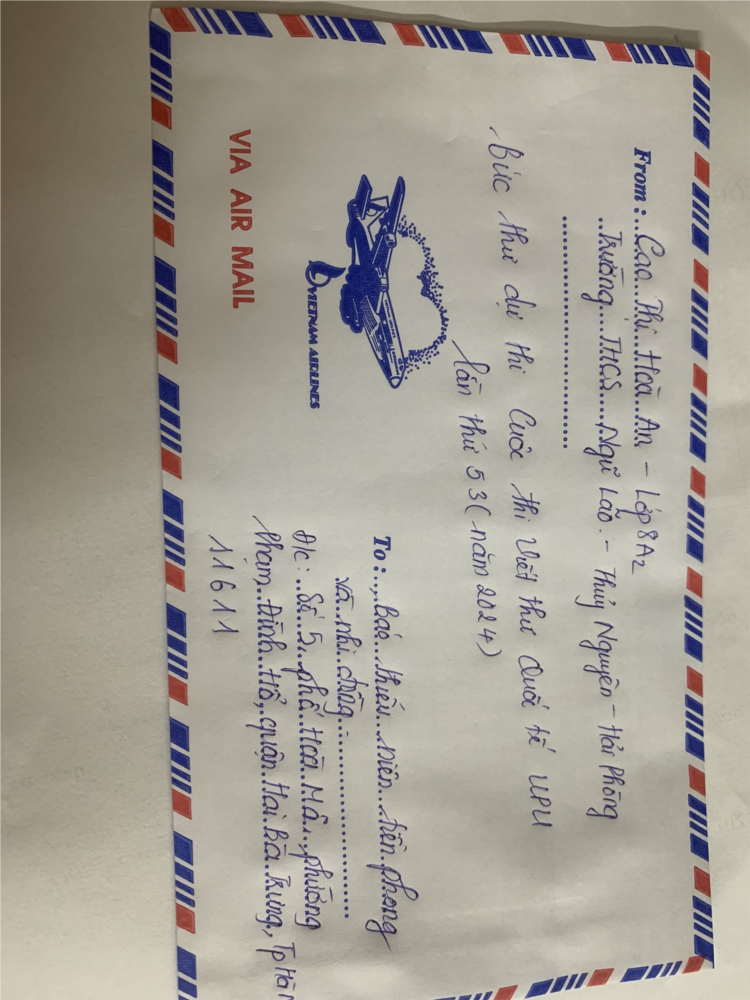 From : Cao Thị Hoà An - Lớp 8A2
Trường THCS Ngũ Lão - Thuỷ Nguyên - Hải Phòng
Bức thư dự thi Cuộc thi Viết thư Quốc tế UPU
lần thứ 53 (năm 2024)
VIETNAM AIRLINES
VIA AIR MAIL
To : Báo thiếu niên tiền phong
và nhi đồng
Đ/c : Số 5, phố Hoà Mã, phường
Phạm Đình Hổ, quận Hai Bà Trưng, Tp Hà
11611